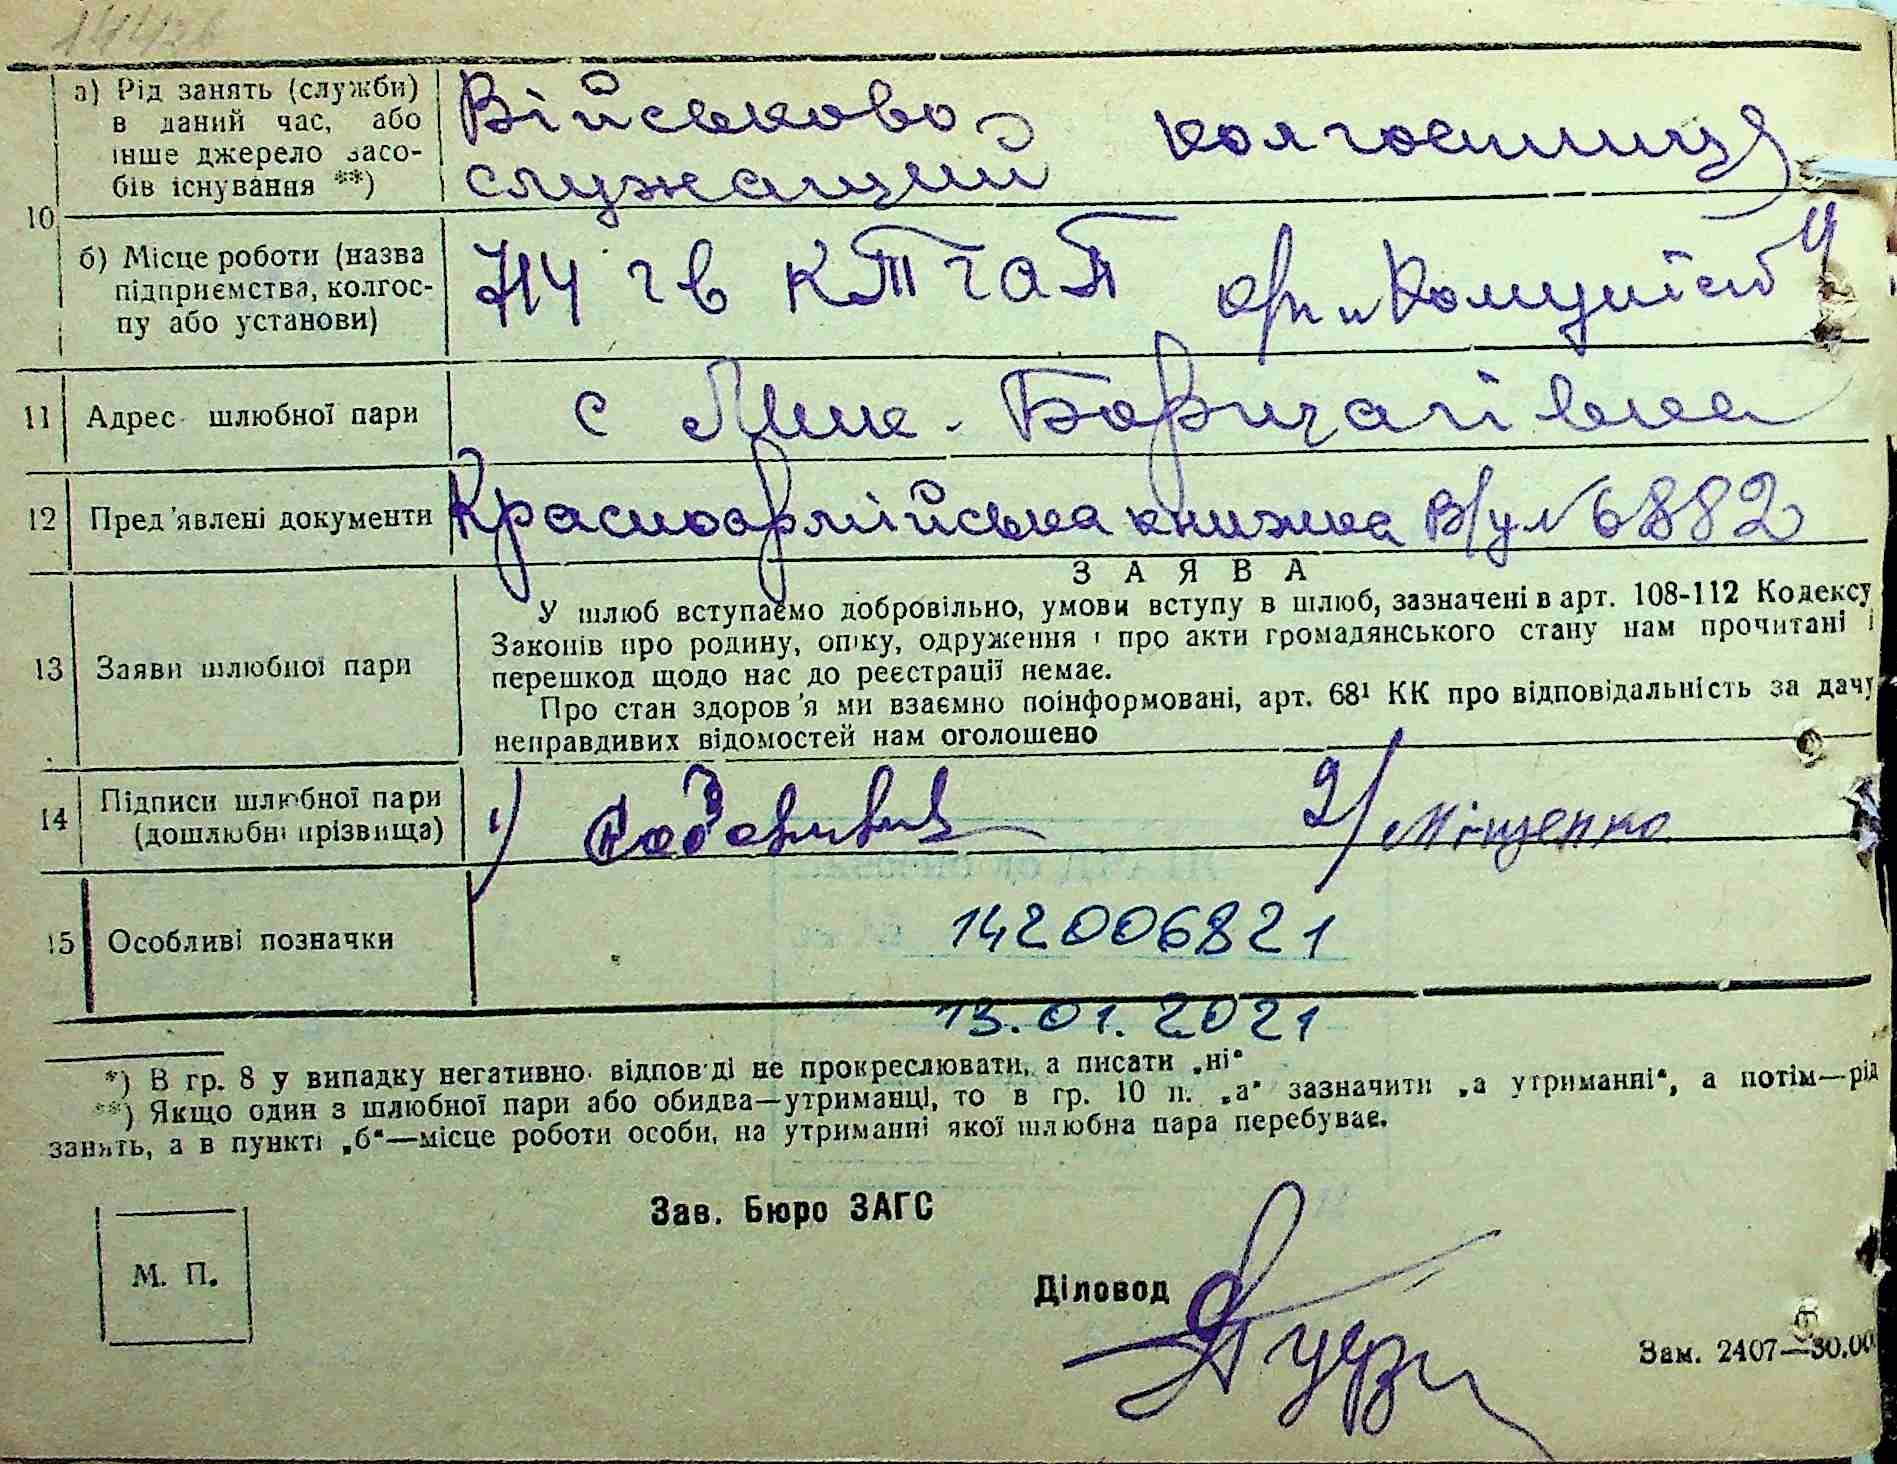 а) Рід занять (служби)
в даний час, або
інше джерело засо-
бів існування **)
Військово
служащий
колгоспниця
10
б) Місце роботи (назва
підприємства, колгос-
пу або установи)
гв
"Комуніст"
11 Адрес шлюбної пари
с Мик. Борщагівка
12 Пред'явлені документи Красноармійська книжка В/ч № 6882
ЗАЯВА
13 Заяви шлюбної пари
У шлюб вступаємо добровільно, умови вступу в шлюб, зазначені в арт. 108-112 Кодексу
Законів про родину, опіку, одруження і про акти громадянського стану нам прочитані і
перешкод щодо нас до реєстрації немає.
Про стан здоров'я ми взаємно поінформовані, арт. 68¹ КК про відповідальність за дачу
неправдивих відомостей нам оголошено
14 Підписи шлюбної пари
(дошлюбні прізвища)
1)
2/ Міщенко
15 Особливі позначки
142006821
13.01.2021
*) В гр. 8 у випадку негативної відповіді не прокреслювати, а писати „ні“
**) Якщо один з шлюбної пари або обидва—утриманці, то в гр. 10 п. „а“ зазначити „а утриманні“, а потім—рід
занять, а в пункті „б“—місце роботи особи, на утриманні якої шлюбна пара перебуває.
Зав. Бюро ЗАГС
М. П.
Діловод
Зам. 2407—30.00